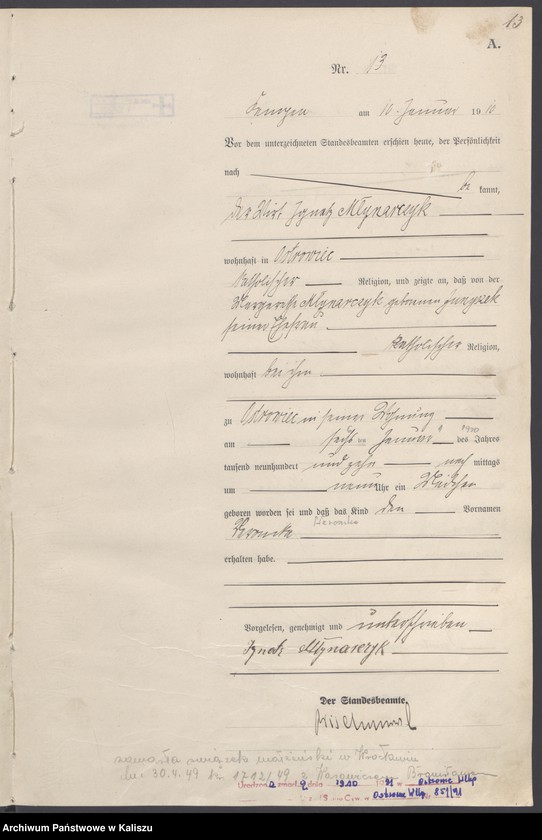 13
A.
Nr. 13
Kempen am 10. Januar 1910
Vor dem unterzeichneten Standesbeamten erschien heute, der Persönlichkeit
nach be kannt,
der Wirt Ignatz Młynarczyk
wohnhaft in Ostrowiec
katholischer Religion, und zeigte an, daß von der
Margaretha Młynarczyk geborenen
seiner Ehefrau
katholischer Religion,
wohnhaft bei ihm
zu Ostrowiec in seiner Wohnung
am sechsten Januar des Jahres
tausend neunhundert und zehn nach mittags
um neun Uhr ein Mädchen
geboren worden sei und daß das Kind den Vornamen
Weronika
Veronika
erhalten habe.
Vorgelesen, genehmigt und unterschrieben
Ignatz Młynarczyk
Der Standesbeamte.
zawarła związek małżeński w Wrocławiu
dn. 30.4.49 Nr 1792/49 z
Urodzona zmarł a dnia 1910 1991 w Ostrowie Wlkp
Ostrow Wlkp. 851/91
Archiwum Państwowe w Kaliszu